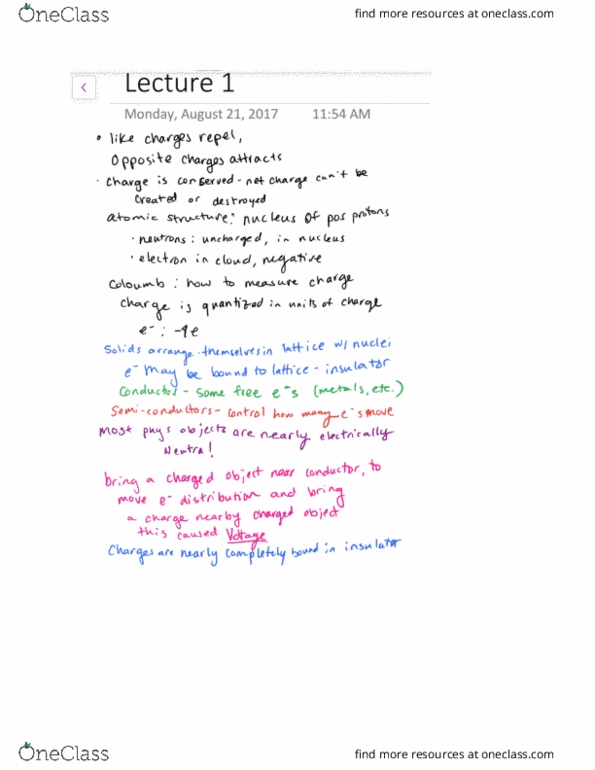 OneClass
find more resources at oneclass.com
<
Lecture 1
Monday, August 21, 2017 11:54 AM
• like charges repel,
Opposite charges attracts
· Charge is conserved - net charge can't be
created or destroyed
atomic structure: nucleus of pos protons
· neutrons: uncharged, in nucleus
· electron in cloud, negative
Coloumb: how to measure charge
charge is quantized in units of charge
e⁻: -1e
Solids arrange themselves in lattice w/ nuclei
e⁻ may be bound to lattice - insulator
Conductor - some free e⁻s (metals, etc.)
Semi-conductors - control how many e⁻s move
most phys objects are nearly electrically
Neutral!
bring a charged object near conductor, to
move e⁻ distribution and bring
a charge nearby charged object
this caused Voltage
Charges are nearly completely bound in insulator
OneClass
find more resources at oneclass.com